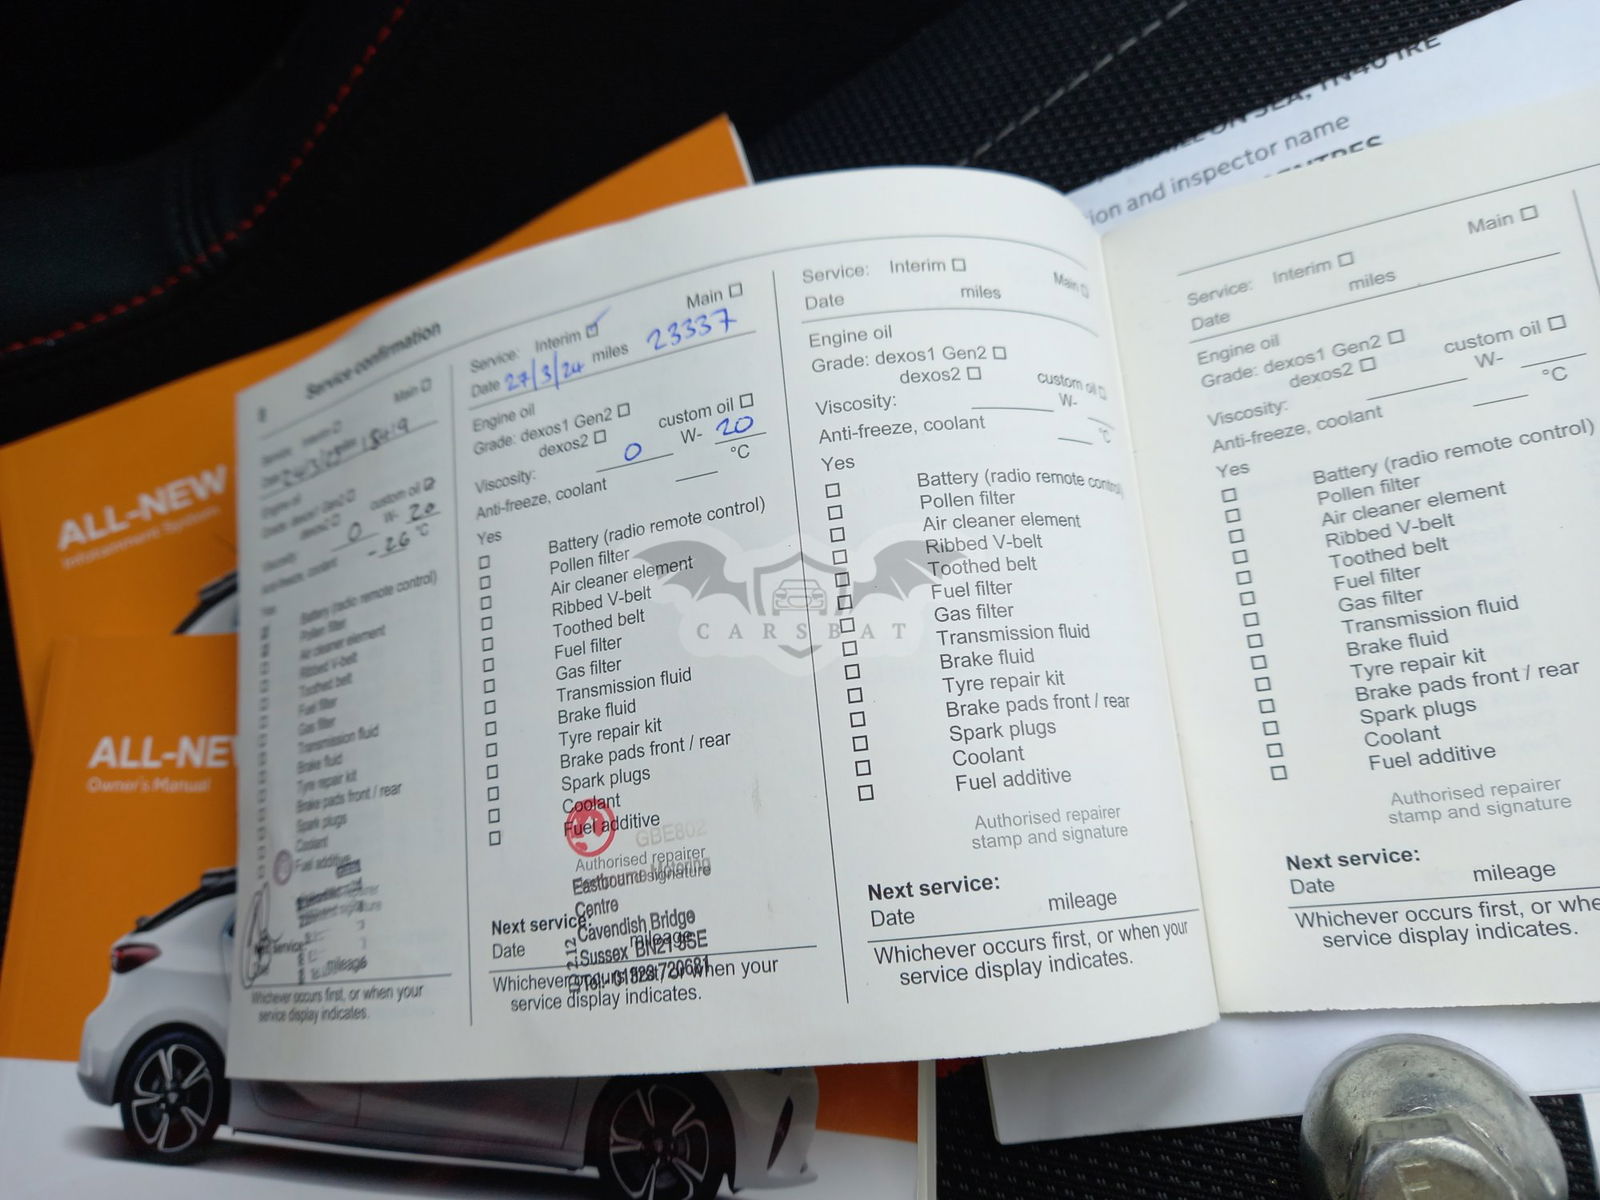 ALL-NEW
Infotainment System
ALL-NEW
Owner's Manual
ON SEA, TN40 1RE
ion and inspector name
CENTRES
8
Service confirmation
Main
Interim
custom oil
0 W- 20
-26 °C
Battery (radio remote control)
Pollen filter
Air cleaner element
Ribbed V-belt
Toothed belt
Fuel filter
Gas filter
Transmission fluid
Brake fluid
Tyre repair kit
Brake pads front / rear
Spark plugs
Coolant
Fuel additive
mileage
Whichever occurs first, or when your
service display indicates.
Service: Interim Main
Date 27/3/24 miles 23337
Engine oil
Grade: dexos1 Gen2
dexos2 custom oil
Viscosity: 0 W- 20
Anti-freeze, coolant °C
Yes
Battery (radio remote control)
Pollen filter
Air cleaner element
Ribbed V-belt
Toothed belt
Fuel filter
Gas filter
Transmission fluid
Brake fluid
Tyre repair kit
Brake pads front / rear
Spark plugs
Coolant
Fuel additive
GBE802
Authorised repairer
stamp and signature
Eastbourne Motoring
Centre
Cavendish Bridge
Sussex BN21
Tel:- 01323 720681
Next service:
Date mileage
Whichever occurs first, or when your
service display indicates.
Service: Interim Main
Date miles
Engine oil
Grade: dexos1 Gen2
dexos2 custom oil
Viscosity: W-
Anti-freeze, coolant °C
Yes
Battery (radio remote control)
Pollen filter
Air cleaner element
Ribbed V-belt
Toothed belt
Fuel filter
Gas filter
Transmission fluid
Brake fluid
Tyre repair kit
Brake pads front / rear
Spark plugs
Coolant
Fuel additive
Authorised repairer
stamp and signature
Next service:
Date mileage
Whichever occurs first, or when your
service display indicates.
Service: Interim Main
Date miles
Engine oil
Grade: dexos1 Gen2
dexos2 custom oil
Viscosity: W-
Anti-freeze, coolant °C
Yes
Battery (radio remote control)
Pollen filter
Air cleaner element
Ribbed V-belt
Toothed belt
Fuel filter
Gas filter
Transmission fluid
Brake fluid
Tyre repair kit
Brake pads front / rear
Spark plugs
Coolant
Fuel additive
Authorised repairer
stamp and signature
Next service:
Date mileage
Whichever occurs first, or whe
service display indicates.
CARSBAT